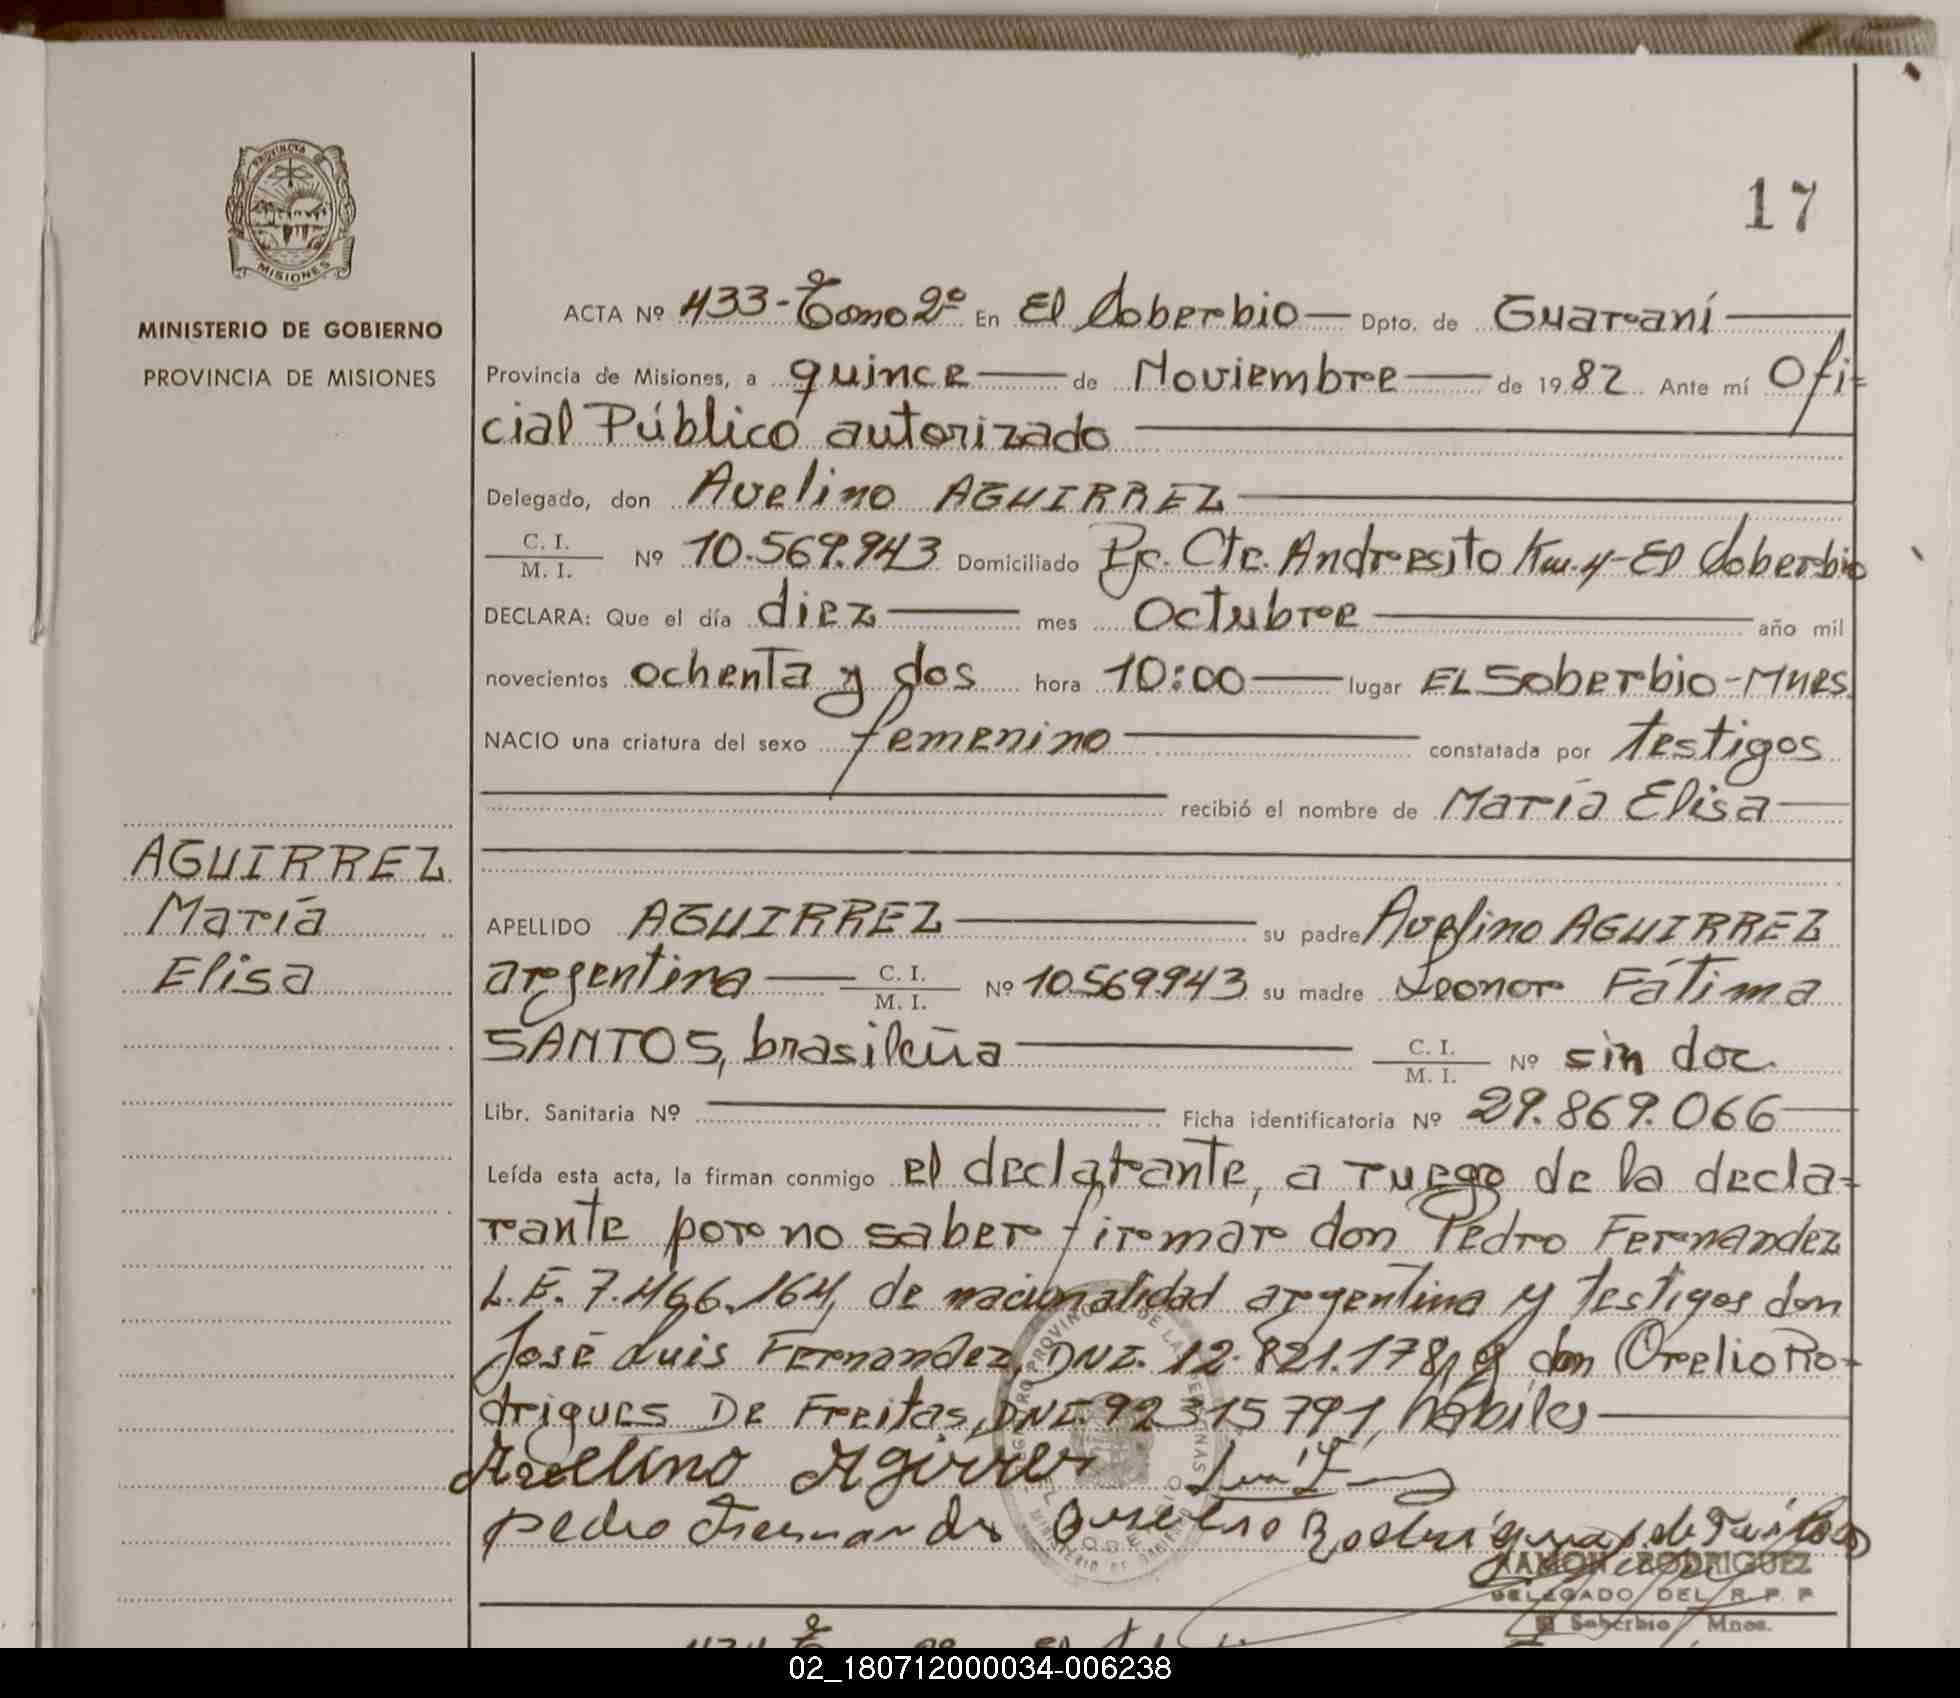 PROVINCIA DE
MISIONES
MINISTERIO DE GOBIERNO
PROVINCIA DE MISIONES
17
ACTA Nº 433-Tomo 2º En El Soberbio Dpto. de Guaraní
Provincia de Misiones, a quince de Noviembre de 1982 Ante mí Ofi=
cial Público autorizado
Delegado, don Avelino AGUIRREZ
C. I. / M. I. Nº 10.569.943 Domiciliado Pje. Cte. Andresito Km. 4-El Soberbio
DECLARA: Que el día diez mes Octubre año mil
novecientos ochenta y dos hora 10:00 lugar EL Soberbio-Mnes.
NACIO una criatura del sexo femenino constatada por testigos
recibió el nombre de María Elisa
AGUIRREZ
María
Elisa
APELLIDO AGUIRREZ su padre Avelino AGUIRREZ
argentina C. I. / M. I. Nº 10.569.943 su madre Leonor Fátima
SANTOS, brasileña C. I. / M. I. Nº sin doc.
Libr. Sanitaria Nº Ficha identificatoria Nº 29.869.066
Leída esta acta, la firman conmigo el declarante, a ruego de la decla-
rante por no saber firmar don Pedro Fernandez
L.E. 7.466.164, de nacionalidad argentina y testigos don
José Luis Fernandez, DNI. 12.821.178, y don Orelio Ro-
drigues De Freitas, DNI. 92315791, hábiles
Avelino Agirrez
Pedro Fernandez Orelino Rodrigues de Freitas
RAMON RODRIGUEZ
DELEGADO DEL R. P. P.
El Soberbio Mnes.
02_180712000034-006238